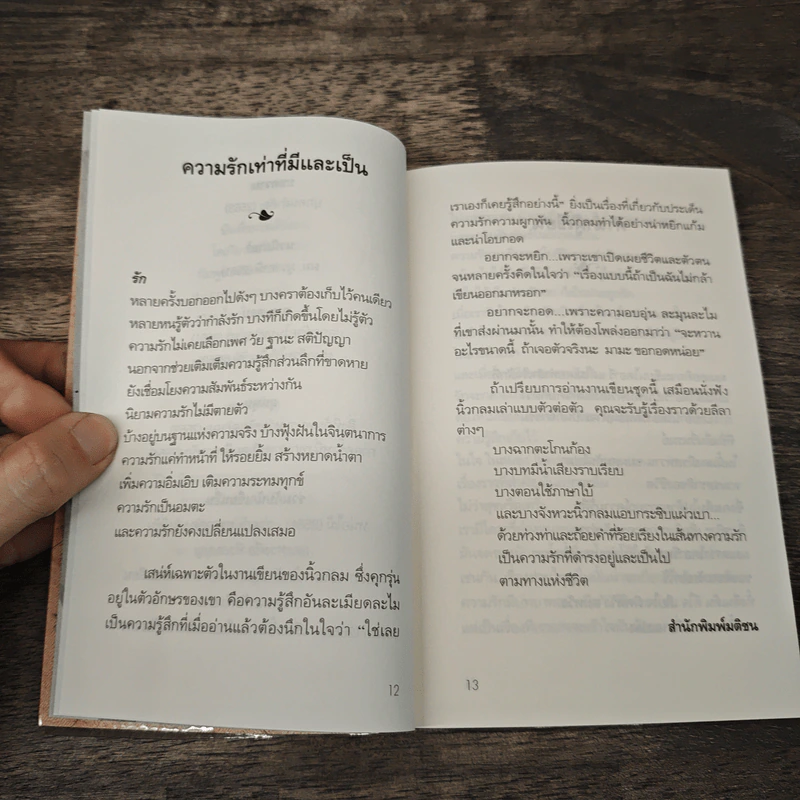 ความรักเท่าที่มีและเป็น
รัก
หลายครั้งบอกออกไปดังๆ บางคราต้องเก็บไว้คนเดียว
หลายหนรู้ตัวว่ากำลังรัก บางทีก็เกิดขึ้นโดยไม่รู้ตัว
ความรักไม่เคยเลือกเพศ วัย ฐานะ สติปัญญา
นอกจากช่วยเติมเต็มความรู้สึกส่วนลึกที่ขาดหาย
ยังเชื่อมโยงความสัมพันธ์ระหว่างกัน
นิยามความรักไม่มีตายตัว
บ้างอยู่บนฐานแห่งความจริง บ้างฟุ้งฝันในจินตนาการ
ความรักแค่ทำหน้าที่ ให้รอยยิ้ม สร้างหยาดน้ำตา
เพิ่มความอิ่มเอิบ เติมความระทมทุกข์
ความรักเป็นอมตะ
และความรักยังคงเปลี่ยนแปลงเสมอ
เสน่ห์เฉพาะตัวในงานเขียนของนิ้วกลม ซึ่งคุกรุ่น
อยู่ในตัวอักษรของเขา คือความรู้สึกอันละเมียดละไม
เป็นความรู้สึกที่เมื่ออ่านแล้วต้องนึกในใจว่า “ใช่เลย
12
เราเองก็เคยรู้สึกอย่างนี้” ยิ่งเป็นเรื่องที่เกี่ยวกับประเด็น
ความรักความผูกพัน นิ้วกลมทำได้อย่างน่าหยิกแก้ม
และน่าโอบกอด
อยากจะหยิก...เพราะเขาเปิดเผยชีวิตและตัวตน
จนหลายครั้งคิดในใจว่า “เรื่องแบบนี้ถ้าเป็นฉันไม่กล้า
เขียนออกมาหรอก”
อยากจะกอด...เพราะความอบอุ่น ละมุนละไม
ที่เขาส่งผ่านมานั้น ทำให้ต้องโพล่งออกมาว่า “จะหวาน
อะไรขนาดนี้ ถ้าเจอตัวจริงนะ มามะ ขอกอดหน่อย”
ถ้าเปรียบการอ่านงานเขียนชุดนี้ เสมือนนั่งฟัง
นิ้วกลมเล่าแบบตัวต่อตัว คุณจะรับรู้เรื่องราวด้วยลีลา
ต่างๆ
บางฉากตะโกนก้อง
บางบทมีน้ำเสียงราบเรียบ
บางตอนใช้ภาษาใบ้
และบางจังหวะนิ้วกลมแอบกระซิบแผ่วเบา...
ด้วยท่วงท่าและถ้อยคำที่ร้อยเรียงในเส้นทางความรัก
เป็นความรักที่ดำรงอยู่และเป็นไป
ตามทางแห่งชีวิต
สำนักพิมพ์มติชน
13